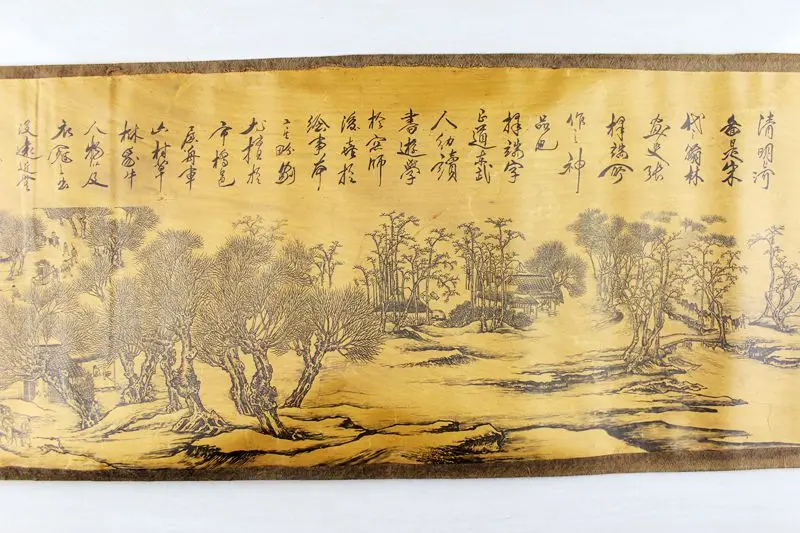 清明河
是宋
代翰林
畫史張
擇端所
作之神
品也
擇端字
正道東武
人幼讀
書遊學
於京師
後喜於
繪事本
工
尤擅於
市橋邑
屋舟車
山村草
林馬牛
人物及
衣冠之出
沒